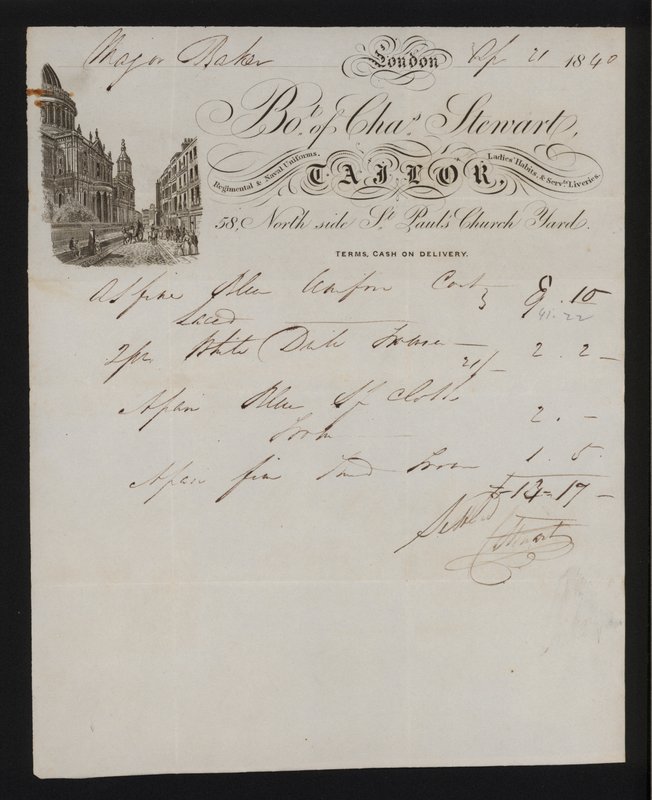 Major Baker London Ap 21 1840
Bo.t of Cha.s Stewart,
Regimental & Naval Uniforms, TAILOR, Ladies' Habits, & Serv.ts Liveries.
58, North side St Paul's Church Yard.
TERMS, CASH ON DELIVERY.
A Sfine Blue Uniform Coat 8 . 10
Laced
2 pr White Trousers 21/- 2 . 2 -
A pair Blue Sf Cloth 2 . -
A pair fine 1 . 5
£ 13 - 17 -
Settled
C Stewart